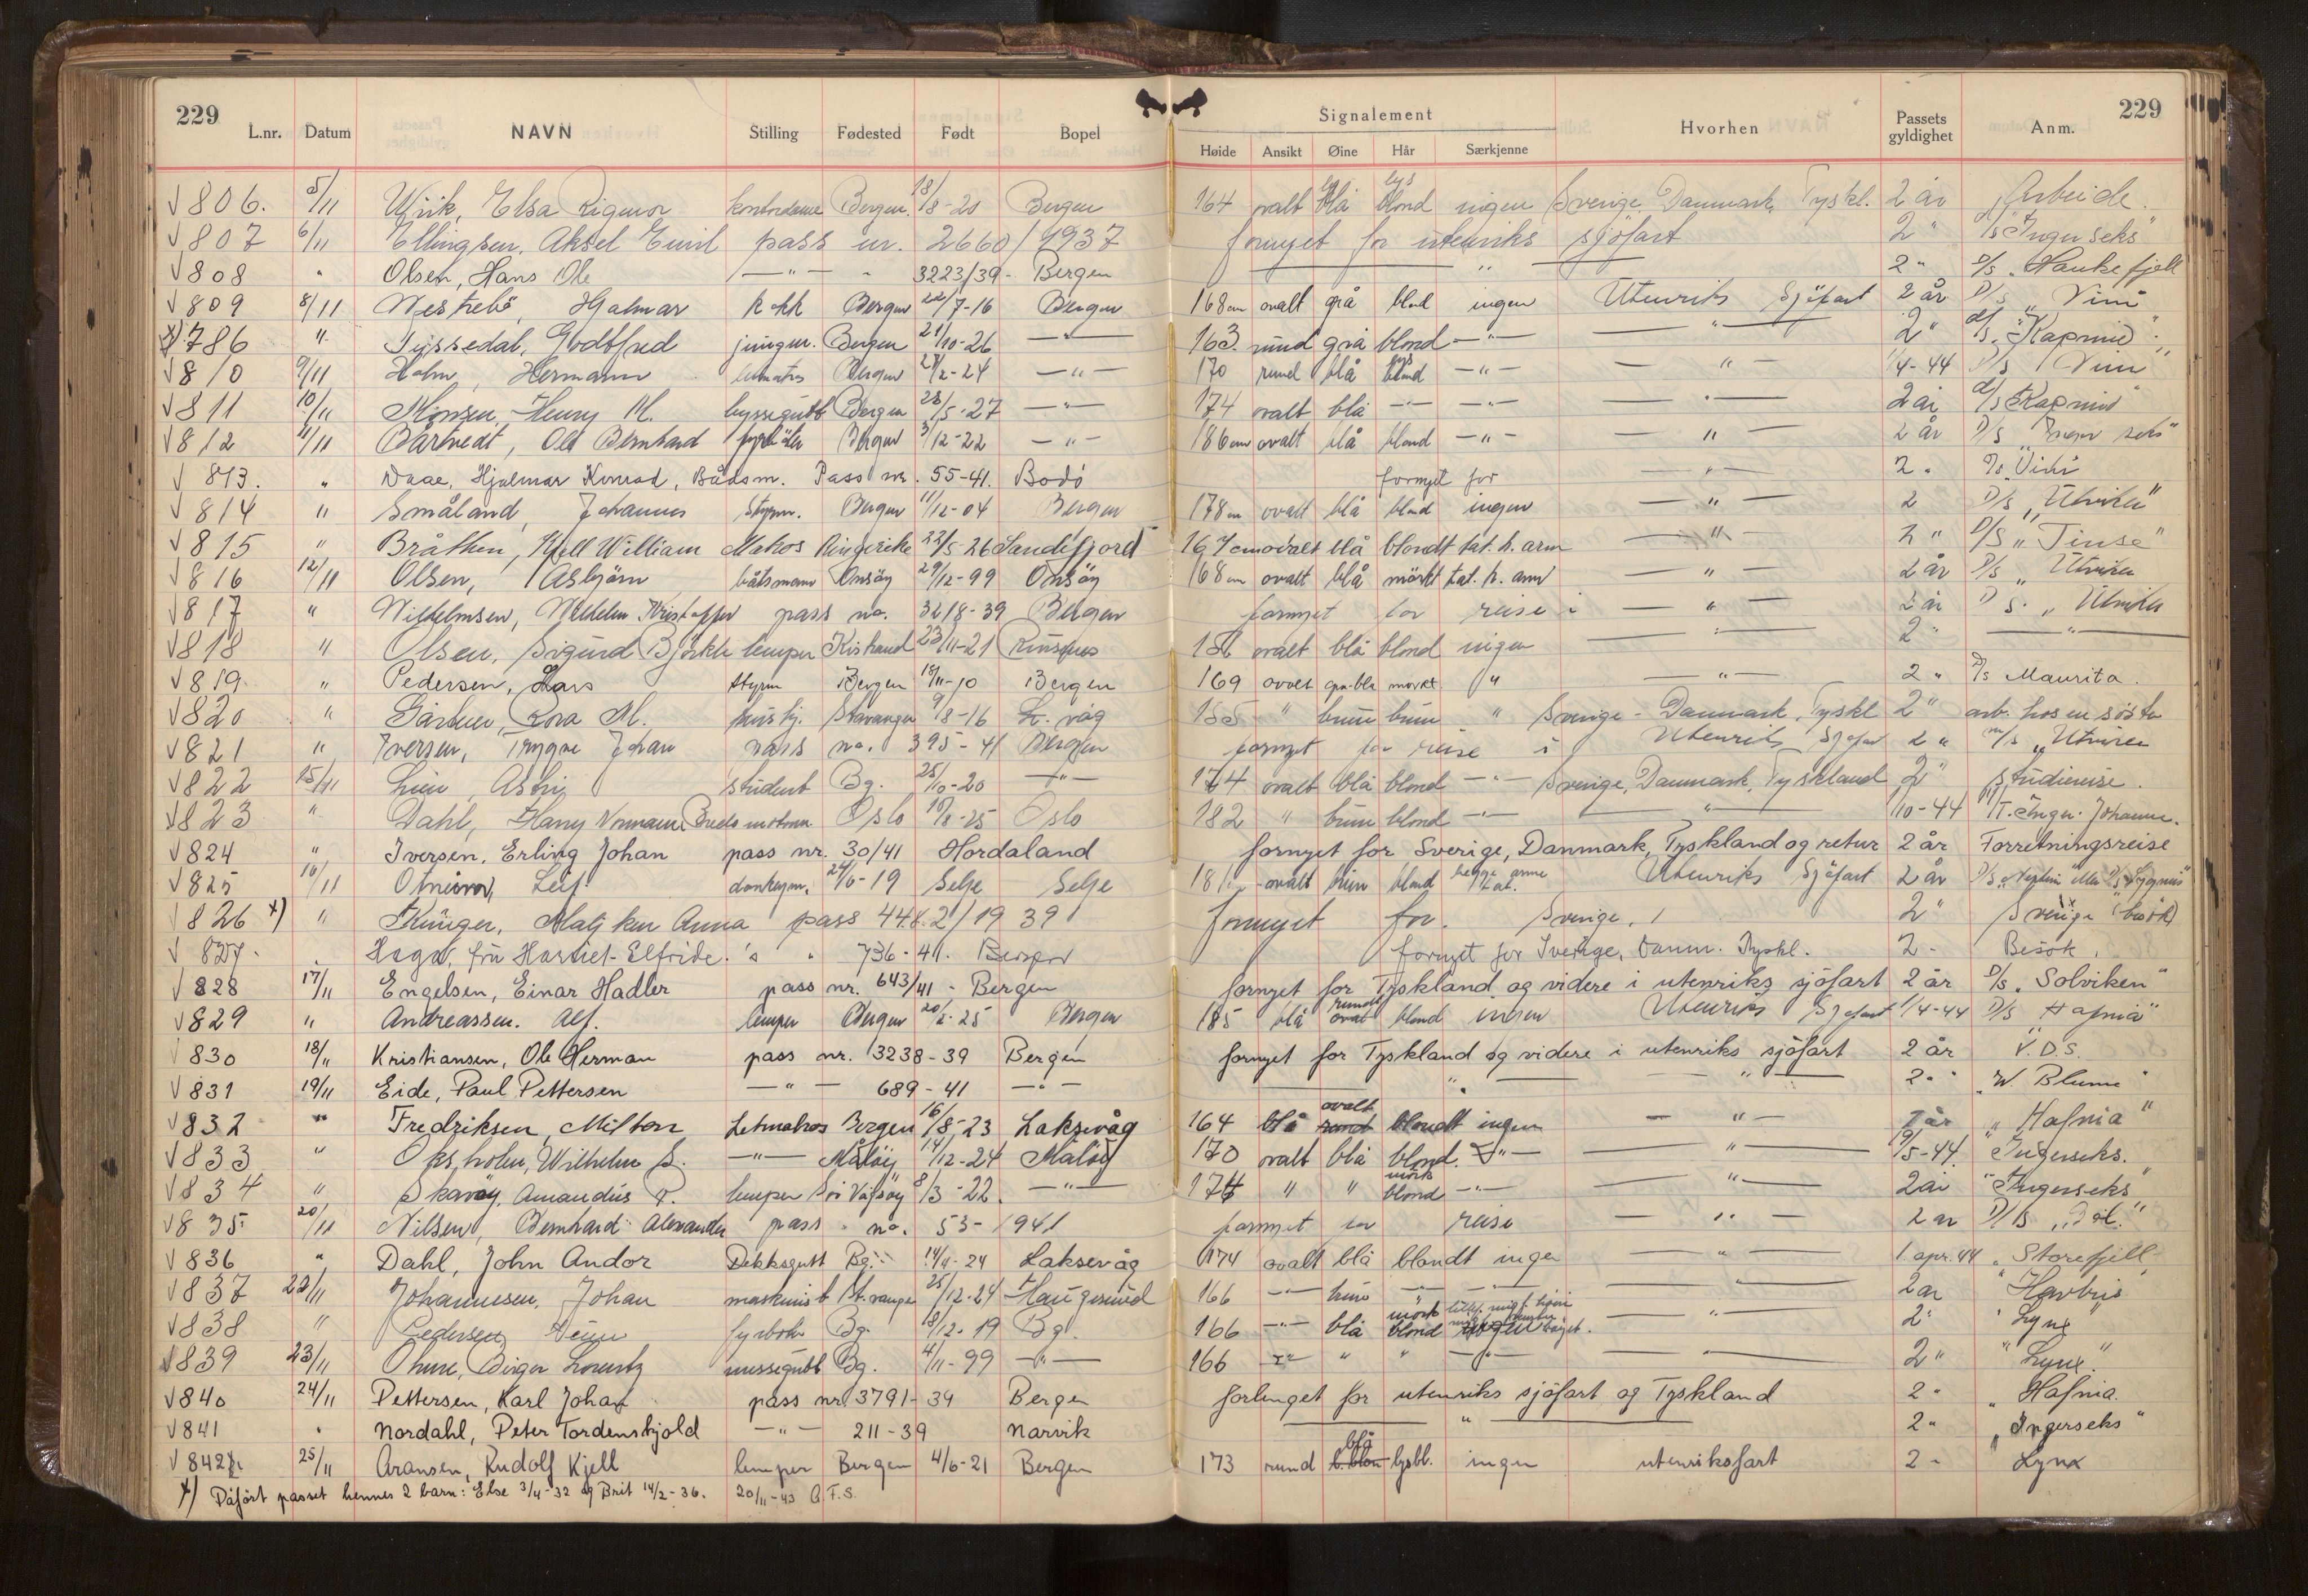 229 229
L.nr. Datum NAVN Stilling Fødested Født Bopel Signalement Hvorhen Passets gyldighet Anm.
Høide Ansikt Øine Hår Særkjenne
V 806. 5/11 Elsa Rigmor kontordame Bergen. 18/8-20 Bergen 164 ovalt lys blå lys blond ingen Sverige Danmark, Tyskl. 2 år Arbeide.
V 807 6/11 Ellingsen, Aksel Emil pass nr. 2660/1937 fornyet for utenriks sjöfart 2 " d/s "Ingerseks"
V 808 " Olsen, Hans Ole —"— " 3223/39 - Bergen —"— 2 " D/S „Haukefjell
V 809 8/11 Hjalmar kokk Bergen 22/7-16 Bergen 168 cm ovalt grå blond ingen Utenriks Sjöfart 2 år D/s „Vim"
x) 786 " Tyssedal, Godtfred jungm. Bergen 21/10-26 —"— 163. rund grå blond —"— —"— 2 " d/s. "Kapmid".
V 810 9/11 Holm, Hermann Bergen 27/2-24 —"— 170 rund blå lys blond —"— —"— 1/4-44 D/s „Vim"
V 811 10/11 Monsen, Henry M. byssegutt Bergen 28/5-27 —"— 174 ovalt blå —"— —"— —"— 2 år d/s "Kapmid"
V 812 11/11 Bårtvedt, Ole Bernhard fyrböter Bergen 3/12-22 —"— 186 cm ovalt blå blond —"— —"— 2 år D/S „Inger seks"
V 813. " Daae, Hjalmar Konrad, Båtsm. Pass nr. 55-41. Bodö fornyet for —"— 2 "
V 814 " Småland, Johannes Styrm. Bergen 11/12-04 Bergen 178 cm ovalt blå blond ingen —"— 2 D/s „Utviken"
V 815 " Bråthen, Kjell William Matros Ringerike 22/5-26 Sandefjord 167 cm ovalt blå blondt tat. h. arm —"— 2 " D/S „Tinse"
V 816 12/11 Olsen, Asbjörn båtsmann Onsöy 29/12-99 Onsöy 168 cm ovalt blå mörkt tat. h. arm —"— 2 år D/s „Utviken
V 817 " Wilhelmsen, Wilhelm Kristoffer pass no. 3218-39 Bergen fornyet for reise i —"— 2 år D/s. „Utviken
V 818 " Olsen, Sigurd Björkli lemper Kistrand 23/11-21 ovalt blå blond ingen —"— 2 " —"—
V 819. " Pedersen, Hans styrm Bergen 18/11-10 Bergen 169 ovalt grå-blå mörkt " —"— 2 " D/s Maurita.
V 820 " Rosa M. hushj. Stavanger 9/8-16 L. våg 155 " brun brun " Sverige - Danmark, Tyskl 2 " arb. hos en söster
V 821 " Iversen, Trygve Johan pass no. 395-41 Bergen fornyet for reise i Utenriks Sjöfart 2 " m/s „Utviken
V 822 15/11 Lien, Astri student Bg. 25/10-20 —"— 174 ovalt blå blond —"— Sverige, Danmark, Tyskland 2 " studiereise.
V 823 " Dahl, Harry Normann Oslo 17/8-25 Oslo 182 " brun blond —"— —"— 1/10-44 Johanne.
V 824 " Iversen, Erling Johan pass nr. 30/41 Hordaland fornyet for Sverige, Danmark, Tyskland og retur 2 år Forretningsreise
V 825 16/11 Leif donkeym. 24/6-19 Selje Selje ovalt brun blond begge arme tat. Utenriks Sjöfart 2 år
V 826 x) " Krüger, Anna pass 448.2/1939 fornyet for. Sverige. 2 " Sverige (besök)
V 827. Haga, fru Harriet-Elfride. " " 736-41. Bergen fornyet for Sverige, Danm. Tyskl. 2 - Besök.
V 828 17/11 Engelsen, Einar Hadler pass nr. 643/41 - Bergen fornyet for Tyskland og videre i utenriks sjöfart 2 år D/s „Solviken"
V 829 " Andreassen. Alf. lemper Bergen 20/2-25 Bergen 185 blå rundt ovalt blond ingen Utenriks Sjöfart 1/4-44 D/s Hafnia"
V 830 18/11 Kristiansen, Ole Herman pass nr. 3238-39 Bergen fornyet for Tyskland og videre i utenriks sjöfart 2 år V.D.S.
V 831 19/11 Eide, Paul Pettersen —"— 689-41 —"— —"— —"— 2 " „W. Blumi"
V 832 " Fredriksen, Milton Letmatros Bergen 16/8-23 Laksevåg 164 blå ovalt rund blondt ingen —"— 1 år „Hafnia"
V 833 " Oksholm, Wilhelm S. —"— Måløy 14/12-24 Måløy 170 ovalt blå blond. —"— —"— 19/5-44. „Ingerseks.
V 834 " Skavöy, Amandus P. lemper Sör Vågsöy 8/3-22. —"— 174 " " mörk blond —"— —"— 2 år "Ingerseks"
V 835 20/11 Nilsen, Bernhard Alexander pass no. 53-1941 fornyet for reise —"— 2 år
V 836 " Dahl, John Andor Dekksgutt Bg. 14/4-24 Laksevåg 174 ovalt blå blondt ingen —"— 1 apr. 44 „Storefjell"
V 837 22/11 Johannesen, Johan maskinist St.vanger 25/12-24 Haugesund 166 —"— brun " —"— —"— 2 år "Havbris"
V 838 " Pedersen fyrböter Bg. 8/12-19 Bg. 166 —"— blå mörk blond ingen —"— 2 " "Lynx"
V 839 23/11 Birger Lorentz messegutt Bg. 4/11-99 —"— 166 —"— " " —"— —"— 2 " "Lynx".
V 840 24/11 Pettersen, Karl Johan pass nr. 3791-39 Bergen forlenget for utenriks sjöfart og Tyskland 2 " „Hafnia.
V 841 " Nordahl, Peter Tordenskjold —"— 211-39 Narvik —"— 2 " „Ingerseks"
V 842 25/11 Aransen, Rudolf Kjell lemper Bergen 4/6-21 Bergen 173 rund blå lysbl. ingen utenriksfart 2 " Lynx
x) Påfört passet hennes 2 barn: Else 3/4-32 og Brit 14/2-36. 20/11-43 A.F.S.